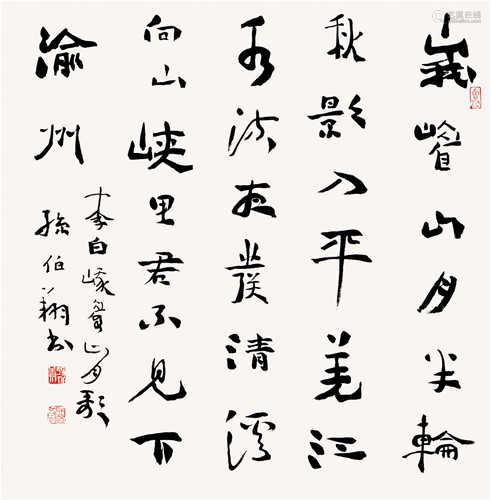 峩嵋山月半輪
秋影入平羌江
水流夜發清溪
向三峽思君不見下
渝州
李白峨眉山月歌
孫伯翔书